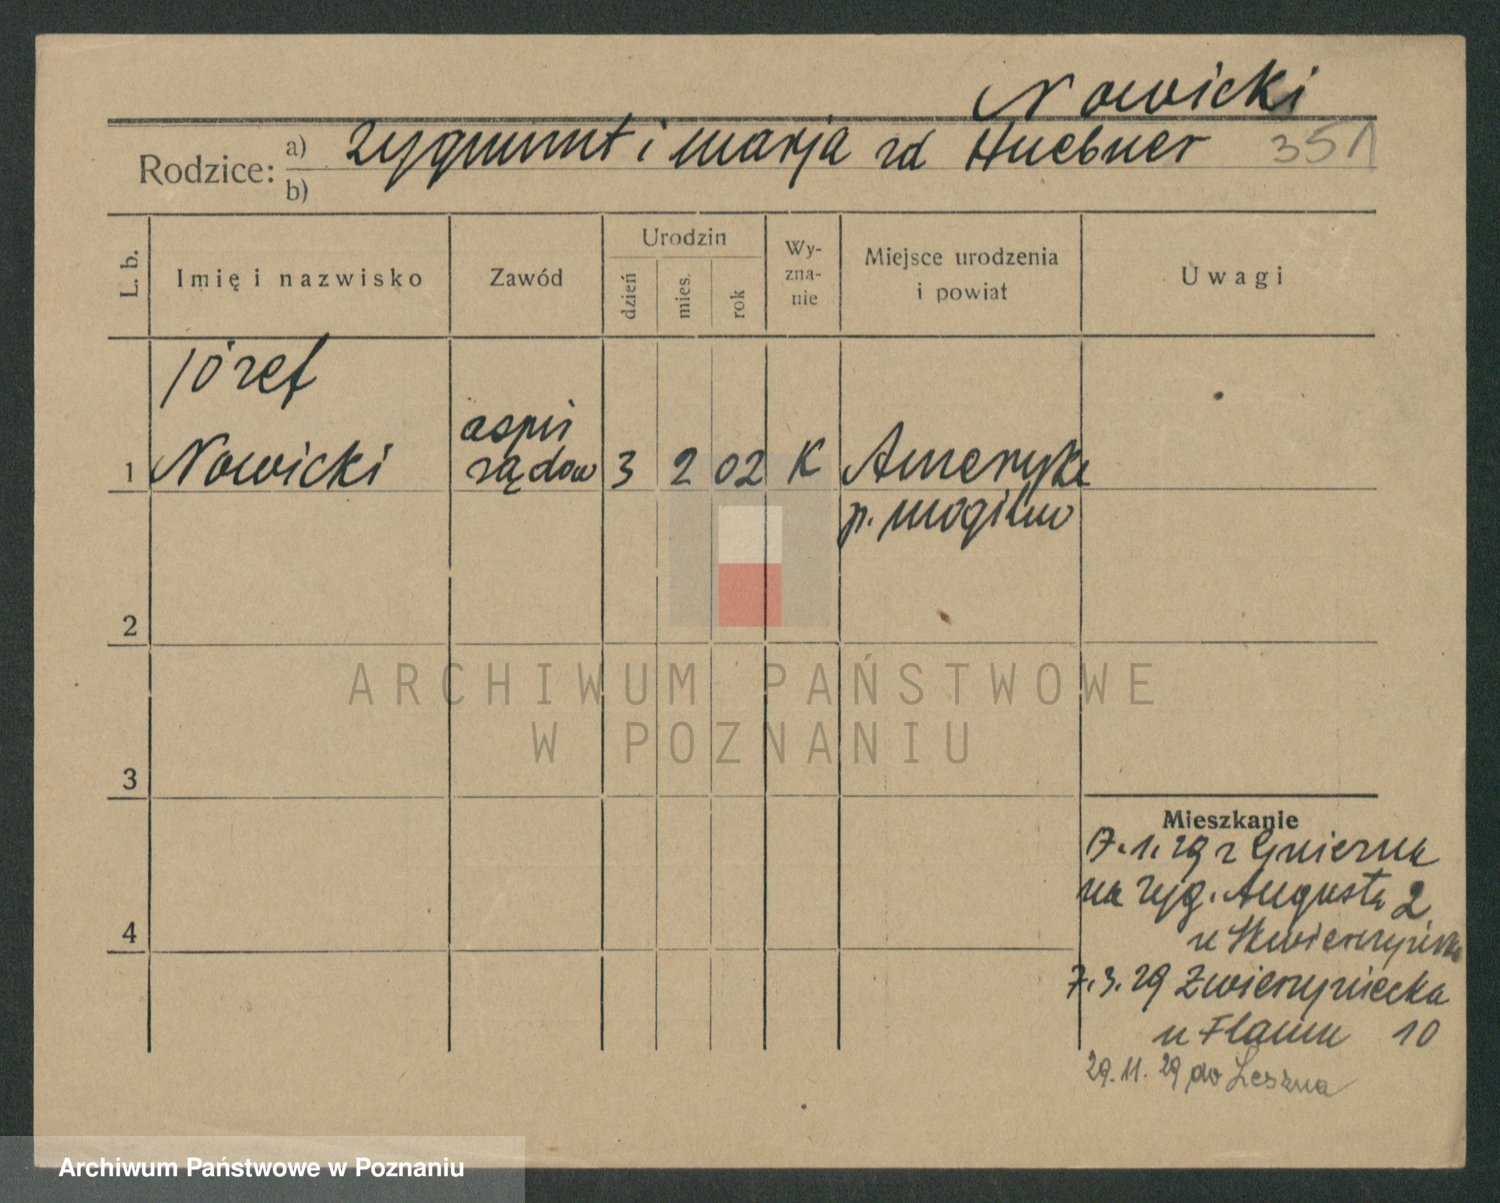 Nowicki
Rodzice: a) Zygmunt i Marja zd Huebner 351
b)
L. b. Imię i nazwisko Zawód Urodzin dzień mies. rok Wy-zna-nie Miejsce urodzenia i powiat Uwagi
Józef
1 Nowicki aspir rządow 3 2 02 K Ameryka
p. Mogilno
2
ARCHIWUM PAŃSTWOWE
W POZNANIU
3
Mieszkanie
7.1.29 z Gniezna
na Zyg. Augusta 2
4
u
7.3.29 Zwierzyniecka
u Flaum 10
29.11.29 do Leszna
Archiwum Państwowe w Poznaniu